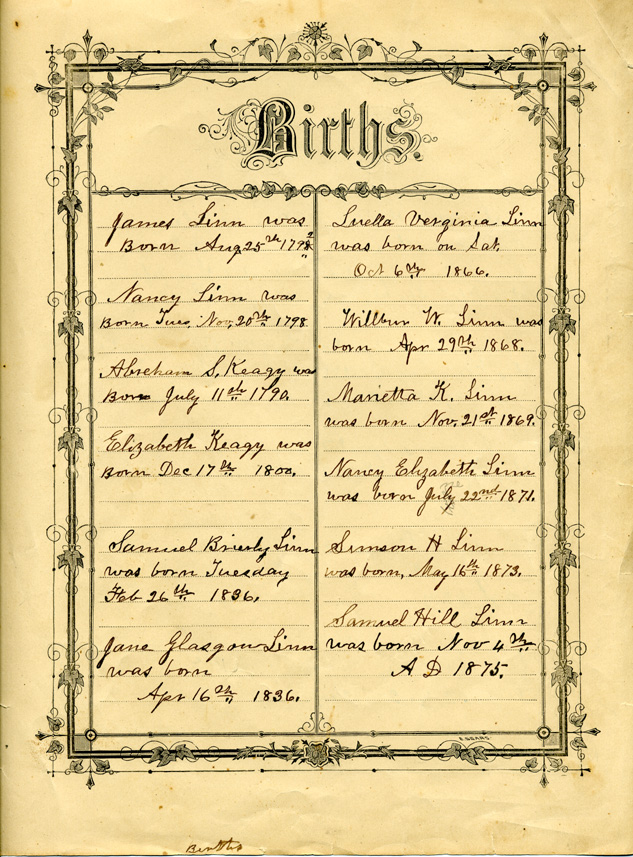 Births.
James Linn was
Born Aug 25th 1792
Nancy Linn was
Born Tues, Nov, 20th 1798
Abreham S. Keagy was
Born July 11th 1790.
Elizabeth Keagy was
Born Dec 17th 1800.
Samuel Brierly Linn
was born Tuesday
Feb 26th 1836.
Jane Glasgow Linn
was born
Apr 16th 1836.
Luella Verginia Linn
was born on Sat.
Oct 6th 1866.
Wilbur W. Linn was
born Apr 29th 1868.
Marietta K. Linn
was born Nov. 21st 1869.
Nancy Elizabeth Linn
was born July 22nd 1871.
Simson H Linn
was born, May 16th 1873.
Samuel Hill Linn
was born Nov 4th
A D 1875.
E. SEARS
Births